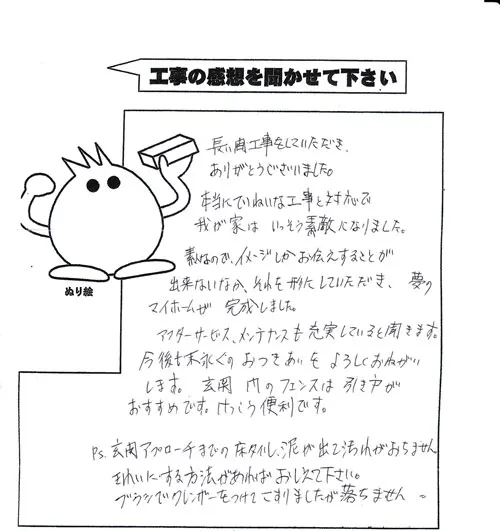 工事の感想を聞かせて下さい
長い間工事をしていただき、
ありがとうございました。
本当にていねいな工事と対応で
我が家は いっそう素敵になりました。
素人なので、イメージしかお伝えすることが
出来ないなか、それを形にしていただき、夢の
マイホームが 完成しました。
アフターサービス、メンテナンスも充実していると聞きます。
今後も末永くの おつきあいを よろしくおねがい
します。 玄関 内の フェンスは 引き戸が
おすすめです。けっこう便利です。
ぬり絵
Ps. 玄関アプローチまでの 床タイル、泥が出て汚れがおちません
きれいにする方法があれば おしえて下さい。
ブラシでクレンザーをつけて こすりましたが落ちません。